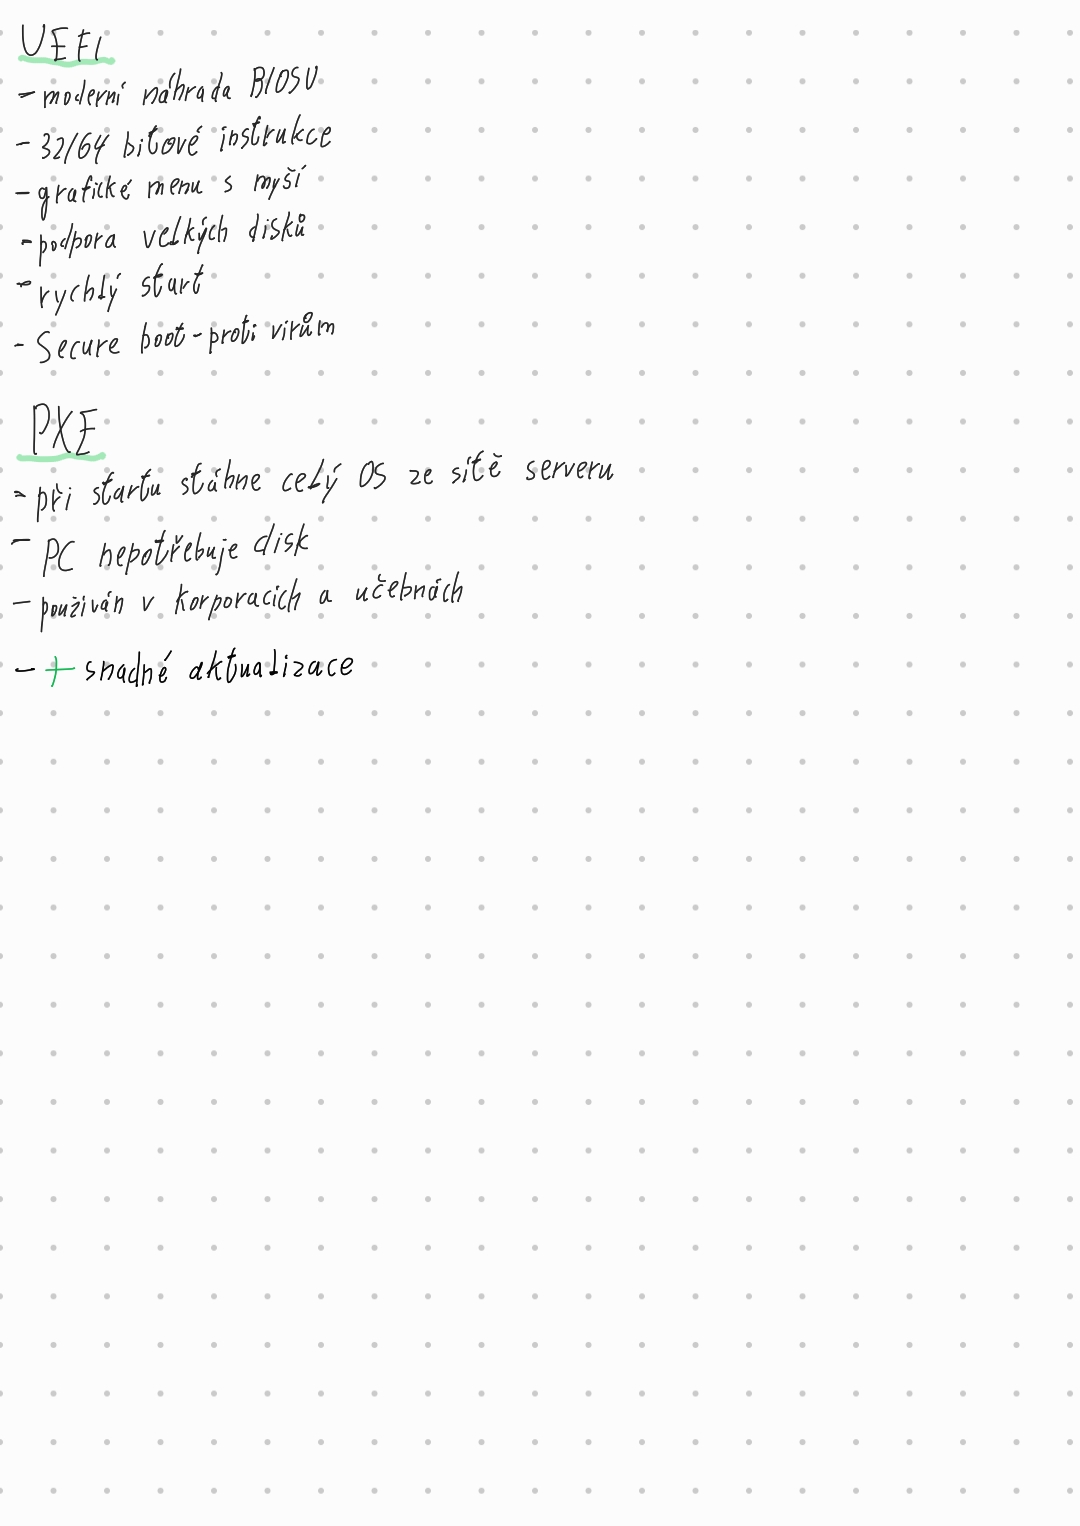 UEFI
- moderní náhrada BIOSU
- 32/64 bitové instrukce
- grafické menu s myší
- podpora velkých disků
- rychlý start
- Secure boot - proti virům
PXE
- při startu stáhne celý OS ze sítě serveru
- PC nepotřebuje disk
- používán v korporacích a učebnách
- + snadné aktualizace